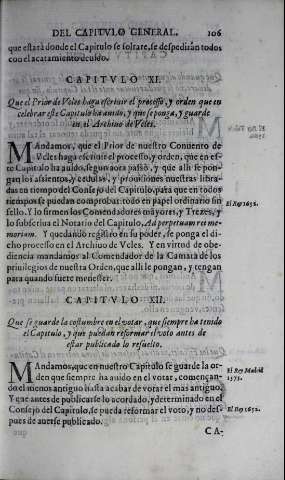 DEL CAPITVLO GENERAL. 106
que estarà donde el Capitulo se soltare, se despediràn todos
con el acatamiento deuido.
CAPITVLO XI.
Que el Prior de Vcles haga escriuir el processo, y orden que en
celebrar este Capitulo ha auido, y que se ponga, y guarde
en el Archiuo de Vcles.
Mandamos, que el Prior de nuestro Conuento de
Vcles haga escriuir el processo, y orden, que en es-
te Capitulo ha auido, segun aora passò, y que alli se pon-
gan los assientos, y cedulas, y prouisiones nuestras libra-
das en tiempo del Consejo del Capitulo, para que en todos
tiempos se puedan comprobar todo en papel ordinario sin
sello. Y lo firmen los Comendadores mayores, y Trezes, y
lo subscriua el Notario del Capitulo, Ad perpetuam rei me-
moriam. Y quedando registro en su poder, se ponga el di-
cho processo en el Archiuo de Vcles. Y en virtud de obe-
diencia mandamos al Comendador de la Camara de los
priuilegios de nuestra Orden, que alli le pongan, y tengan
para quando fuere menester.
El Rey 1652.
CAPITVLO XII.
Que se guarde la costumbre en el votar, que siempre ha tenido
el Capitulo, y que puedan reformar el voto antes de
estar publicado lo resuelto.
Mandamos, que en nuestro Capitulo se guarde la or-
den que siempre ha auido en el votar, començan-
do el menos antiguo hasta acabar de votar el mas antiguo.
Y que antes de publicarse lo acordado, y determinado en el
Consejo del Capitulo, se pueda reformar el voto, y no des-
pues de auerse publicado.
El Rey Madrid
1573.
El Rey 1652.
CA-